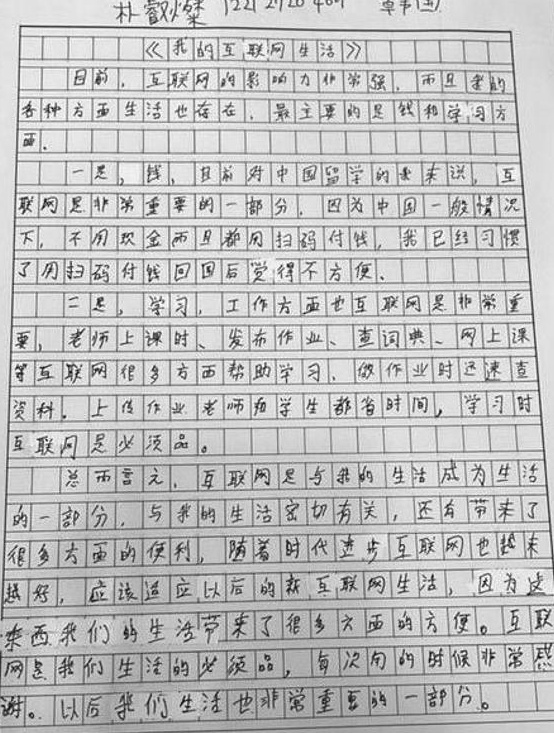 朴叡燦
《我的互联网生活》
目前，互联网的影响力非常强，而且我的
各种方面生活也存在，最主要的是钱和学习方
面.
一是，钱，目前对中国留学的我来说，互
联网是非常重要的一部分，因为中国一般情况
下，不用现金而且都用扫码付钱，我已经习惯
了用扫码付钱回国后觉得不方便、
二是，学习，工作方面也互联网是非常重
要，老师上课时、发布作业、查词典、网上课
等互联网很多方面帮助学习、做作业时迅速查
资料，上传作业老师和学生都省时间，学习时
互联网是必须品。
总而言之，互联网是与我的生活成为生活
的一部分，与我的生活密切有关，还有带来了
很多方面的便利，随着时代进步互联网也越来
越好，应该适应以后的新互联网生活，因为这
东西我们的生活带来了很多方面的方便。互联
网是我们生活的必须品，每次用的时候非常感
谢。以后我们生活也非常重要的一部分。